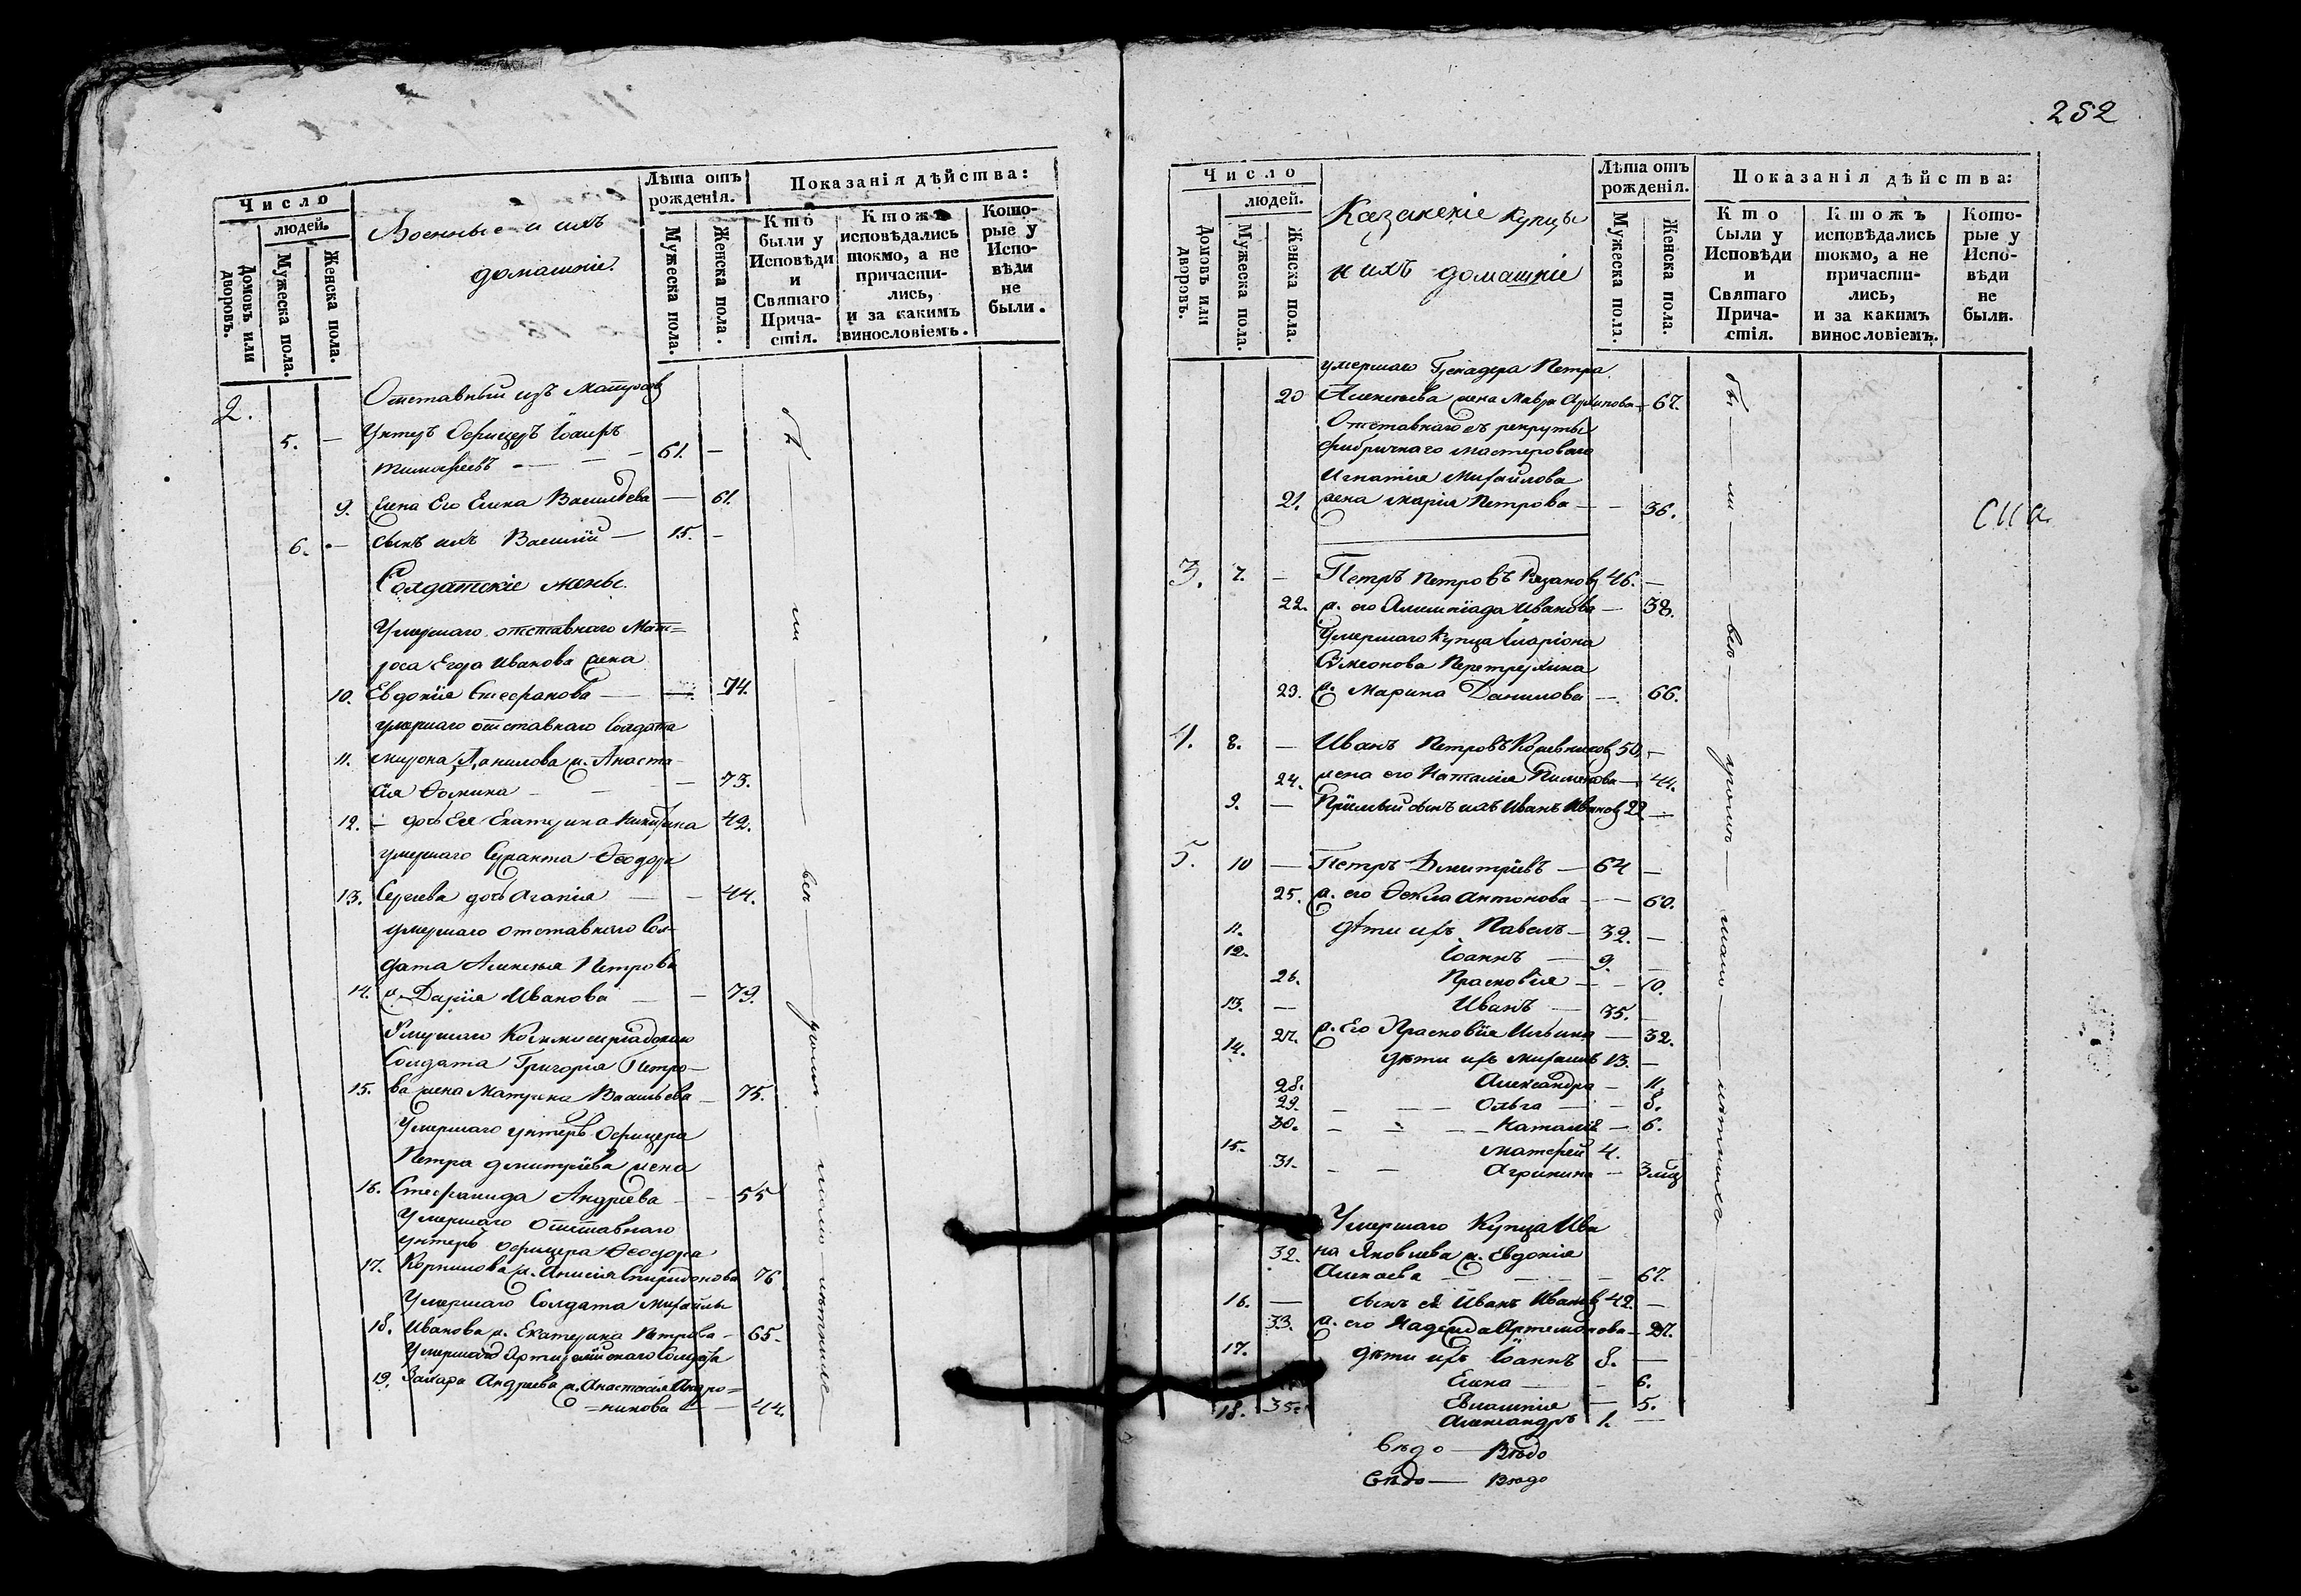 252
Число
людей.
Домовъ или дворовъ.
Мужеска пола.
Женска пола.
Военные и ихъ
домашніе.
Лѣта отъ рожденія.
Мужеска пола.
Женска пола.
Показанія дѣйства:
Кто были у Исповѣди и Святаго Прича-стія.
Ктожъ исповѣдались токмо, а не причасти-лись, и за какимъ винословіемъ.
Кото-рые у Испо-вѣди не были.
2.
Отставный изъ Матросъ
5. — Унтеръ Офицеръ
Тимофеевъ — — — 61. —
9. жена Его Елена Васильева — 61.
6. — сынъ ихъ Василій — 15. —
Солдатскіе жены.
Умершаго отставнаго Мат=
роса Егора Иванова жена
10. Евдокія Стефанова — — 74.
умершаго отставнаго Солдата
11. Мирона Данилова ж. Анаста-
сія Фомина — — — 73.
12. — дочь Ея Екатерина Никитина 42.
умершаго Сержанта Феодора
13. Сергѣева дочь Агапія — — 44.
умершаго отставнаго Сол-
дата Алексея Петрова
14. ж. Дарія Иванова — — 79.
Умершаго
Солдата Григорія Петро-
15. ва жена Матрена Васильева — 75.
Умершаго унтеръ Офицера
Петра Дмитріева жена
16. Стефанида Андреева — — 55
Умершаго Отставнаго
унтеръ офицера Феодора
17. Корнилова ж. Анисія Спиридонова 76
Умершаго Солдата Михайлы
18. Иванова ж. Екатерина Петрова — 65.
Умершаго Артиллійскаго Солдата
19. Захара Андреева ж. Анастасія Андро=
=никова — 44.
бы — ли — всѣ — кромѣ — мало — лѣтнихъ
Число
людей.
Домовъ или дворовъ.
Мужеска пола.
Женска пола.
Казанскіе купцы
и ихъ домашніе
Лѣта отъ рожденія.
Мужеска пола.
Женска пола.
Показанія дѣйства:
Кто были у Исповѣди и Святаго Прича-стія.
Ктожъ исповѣдались токмо, а не причасти-лись, и за какимъ винословіемъ.
Кото-рые у Испо-вѣди не были.
умершаго Гренадера Петра
20 Алексѣева жена Мавра Архипова — 67.
Отставнаго съ рекруты
фабричнаго мастероваго
Игнатія Михайлова
21. жена Марія Петрова — — 36.
3. 7. — Петръ Петровъ Рязановъ 46. —
22. ж. его Иванова — 38.
Умершаго Купца Иларіона
Симеонова Перетрухина
23. ж. Марина Данилова — 66.
4. 8. — Иванъ Петровъ Кожевниковъ 50. —
24. жена его Наталія Пименова — 44.
9. — Пріемый сынъ ихъ Иванъ Ивановъ 22 —
5. 10 — Петръ Дмитріевъ — 64 —
25. ж. его Фекла Антонова — — 60.
11. дѣти ихъ Павелъ — 32. —
12. Іоаннъ — 9. —
26. Прасковія — — 10.
13. — Иванъ — 35. —
27. ж. Его Прасковія Ильина — 32.
14. дѣти ихъ Михаилъ 13. —
28. Александра — 11.
29. — — — Ольга — — 8.
30. — — — Наталія — 6.
15. Матфей 4.
31. — — Агрипина — 3 мѣс
Умершаго Купца Ива
32. на Яковлева ж. Евдокія
Алексѣева — — — — 67.
16. — сынъ ея Иванъ Ивановъ 42. —
33. ж. его Надежда Артемонова — 27.
17. дѣти ихъ Іоаннъ 8. —
Елена — — 6.
35. Евлампія — 5.
18. Александръ 1. —
бы — ли — всѣ — кромѣ — мало — лѣтнихъ